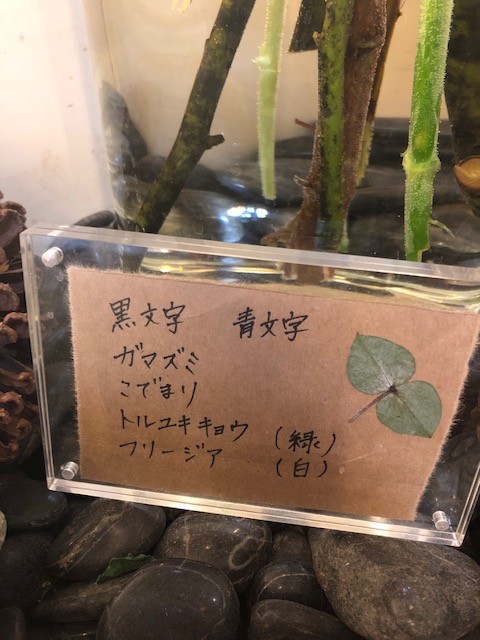 黒文字 青文字
ガマズミ
こでまり
トルユキキョウ (緑)
フリージア (白)